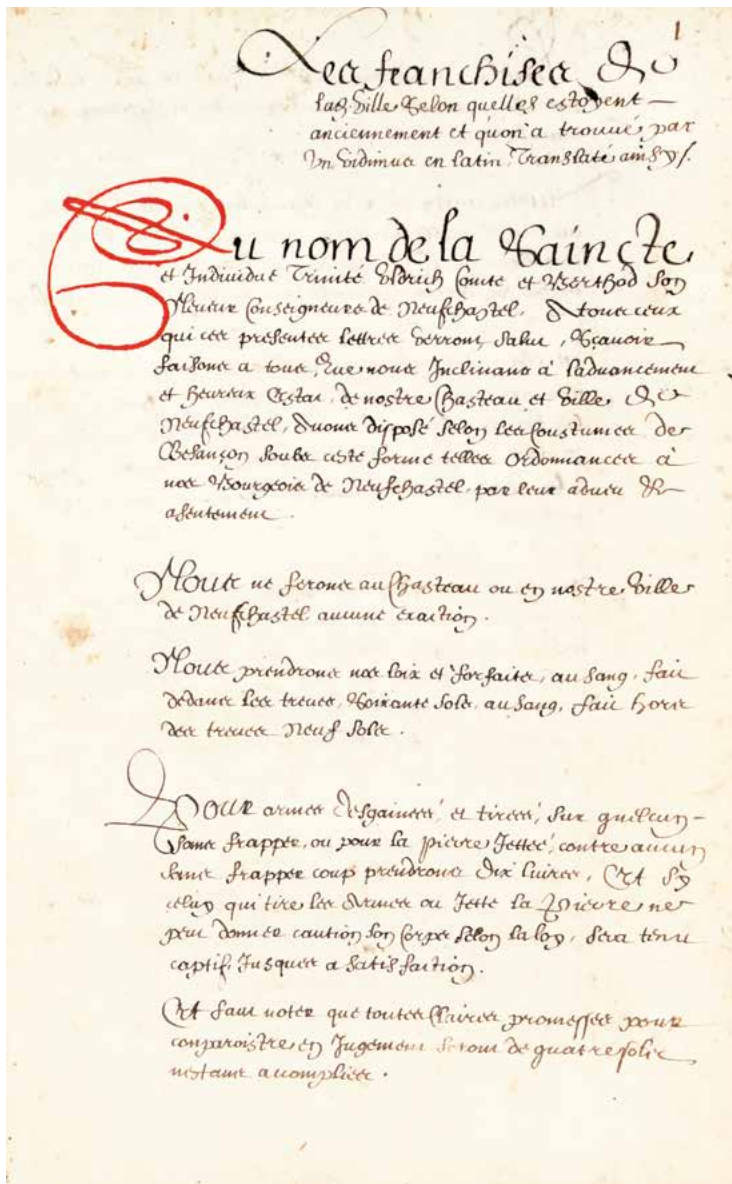 1
Les franchises de
lad. Ville Selon quelles estoyent
anciennement et qu'on a trouvé par
Un Vidimus en latin, Translaté ainsy /.
Au nom de la Saincte
et Individue Trinité Uldrich Comte et Berthod Son
Neveur Conseigneurs de Neufchastel, A tous ceux
qui ces presentes lettres verront, Salut, Sçavoir
faisons a tous, Que nous Inclinans à laduancement
et heureux Estat, de nostre Chasteau et Ville de
Neufchastel, Avons disposé selon les Coustumes de
Besançon soubs ceste forme telles Ordonnances à
nos Bourgeois de Neufchastel, par leur adueu &
asentement.
Nous ne ferons au Chasteau ou en nostre Ville
de Neufchastel aucune exaction.
Nous prendrons nos loix et forfaits, au sang, fait
dedans les treves, Soixante sols, au sang, fait hors
des treves Neuf sols.
Pour armes desgainées, et tirées, sur quelcun
sans frapper, ou pour la pierre Jettée, contre aucun
sans frapper coup prendrons Dix liures, Et sy
celuy qui tire les Armes ou Jette la Pierre ne
peut donner caution son Corps selon la loy, sera tenu
captif, Jusques a satisfaction.
Et faut noter que toutes Claires promesses pour
comparoistre en Jugement seront de quatre sols
nestans acomplies.